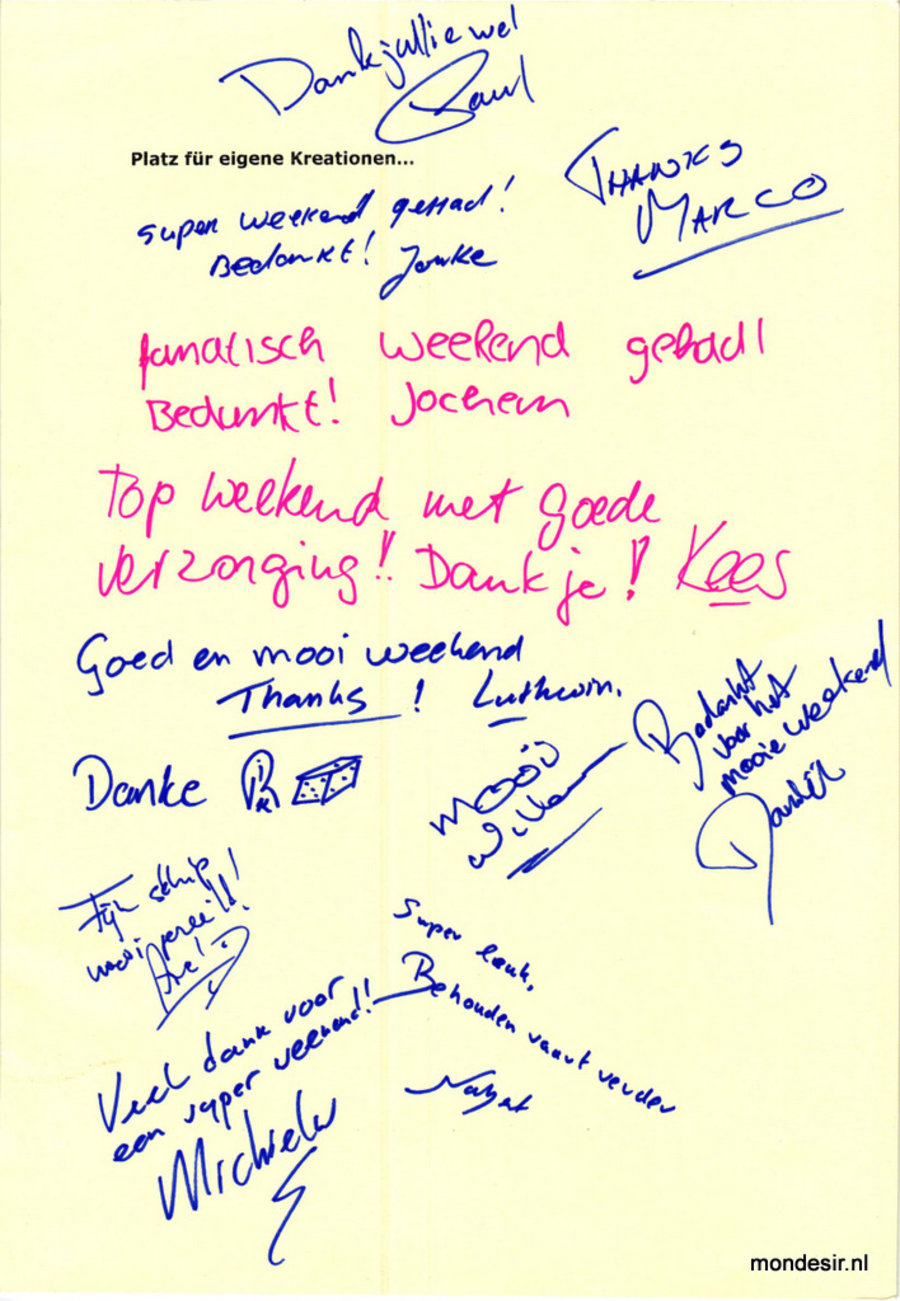 Dank jullie wel
Paul
Platz für eigene Kreationen...
THANKS
MARCO
super weekend gehad!
Bedankt! Jouke
fanatisch weekend gehad!
Bedankt! Jochem
Top weekend met goede
verzorging!! Dank je! Kees
Goed en mooi weekend
Thanks! Luthwin.
Danke
Bedankt
voor het
mooie weekend
mooi
Willem
Fijn schip!
mooi
Axel
Super leuk,
Behouden vaart verder
Veel dank voor
een super weekend!!
Michiel